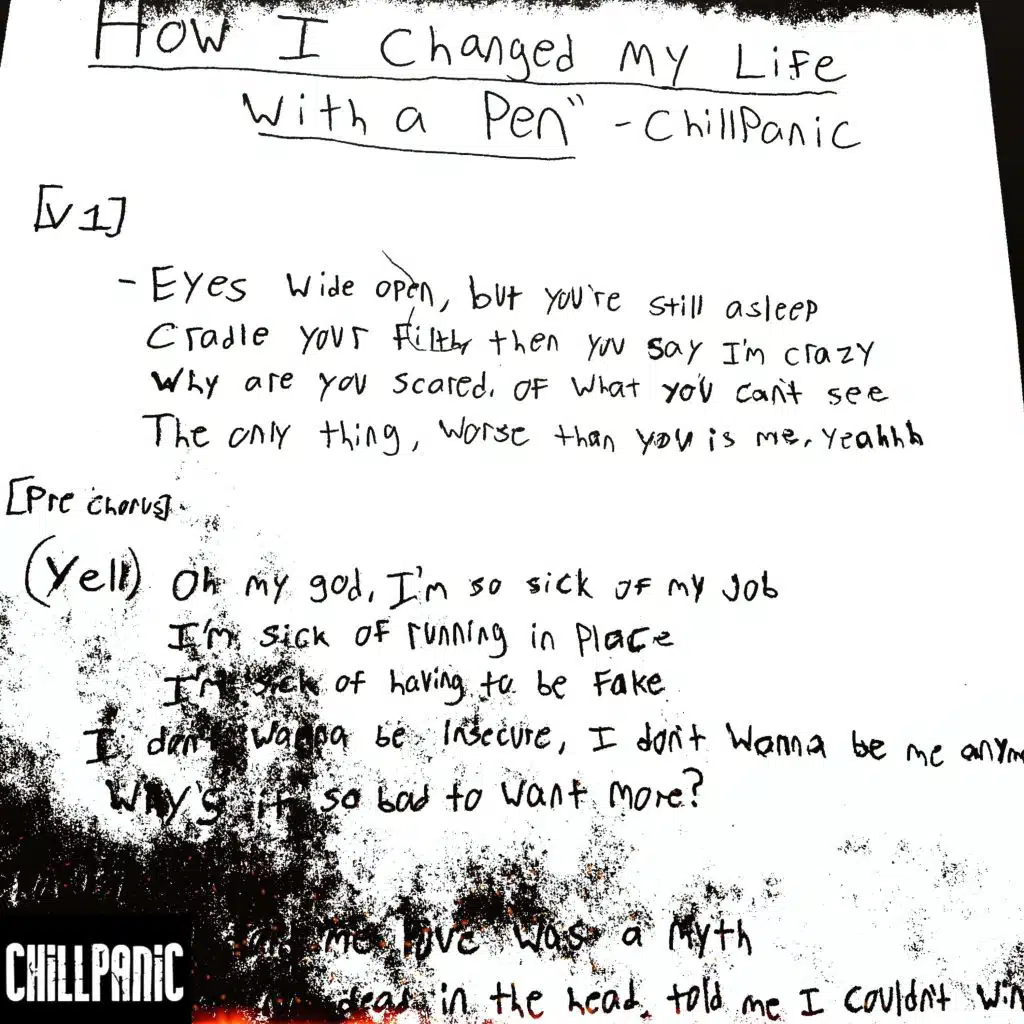 How I Changed My Life
With a Pen" - ChillPanic
[V1]
- Eyes Wide open, but you're still asleep
Cradle your Filth then you say I'm crazy
Why are you scared. of what you can't see
The only thing, worse than you is me, yeahhh
[Pre chorus]
(Yell) Oh my god, I'm so sick of my job
I'm sick of running in place
I'm sick of having to be Fake
I don't wanna be Insecure, I don't wanna be me anym
Why's it so bad to want more?
me love was a Myth
dead in the head, told me I couldn't win
CHiLLPANiC